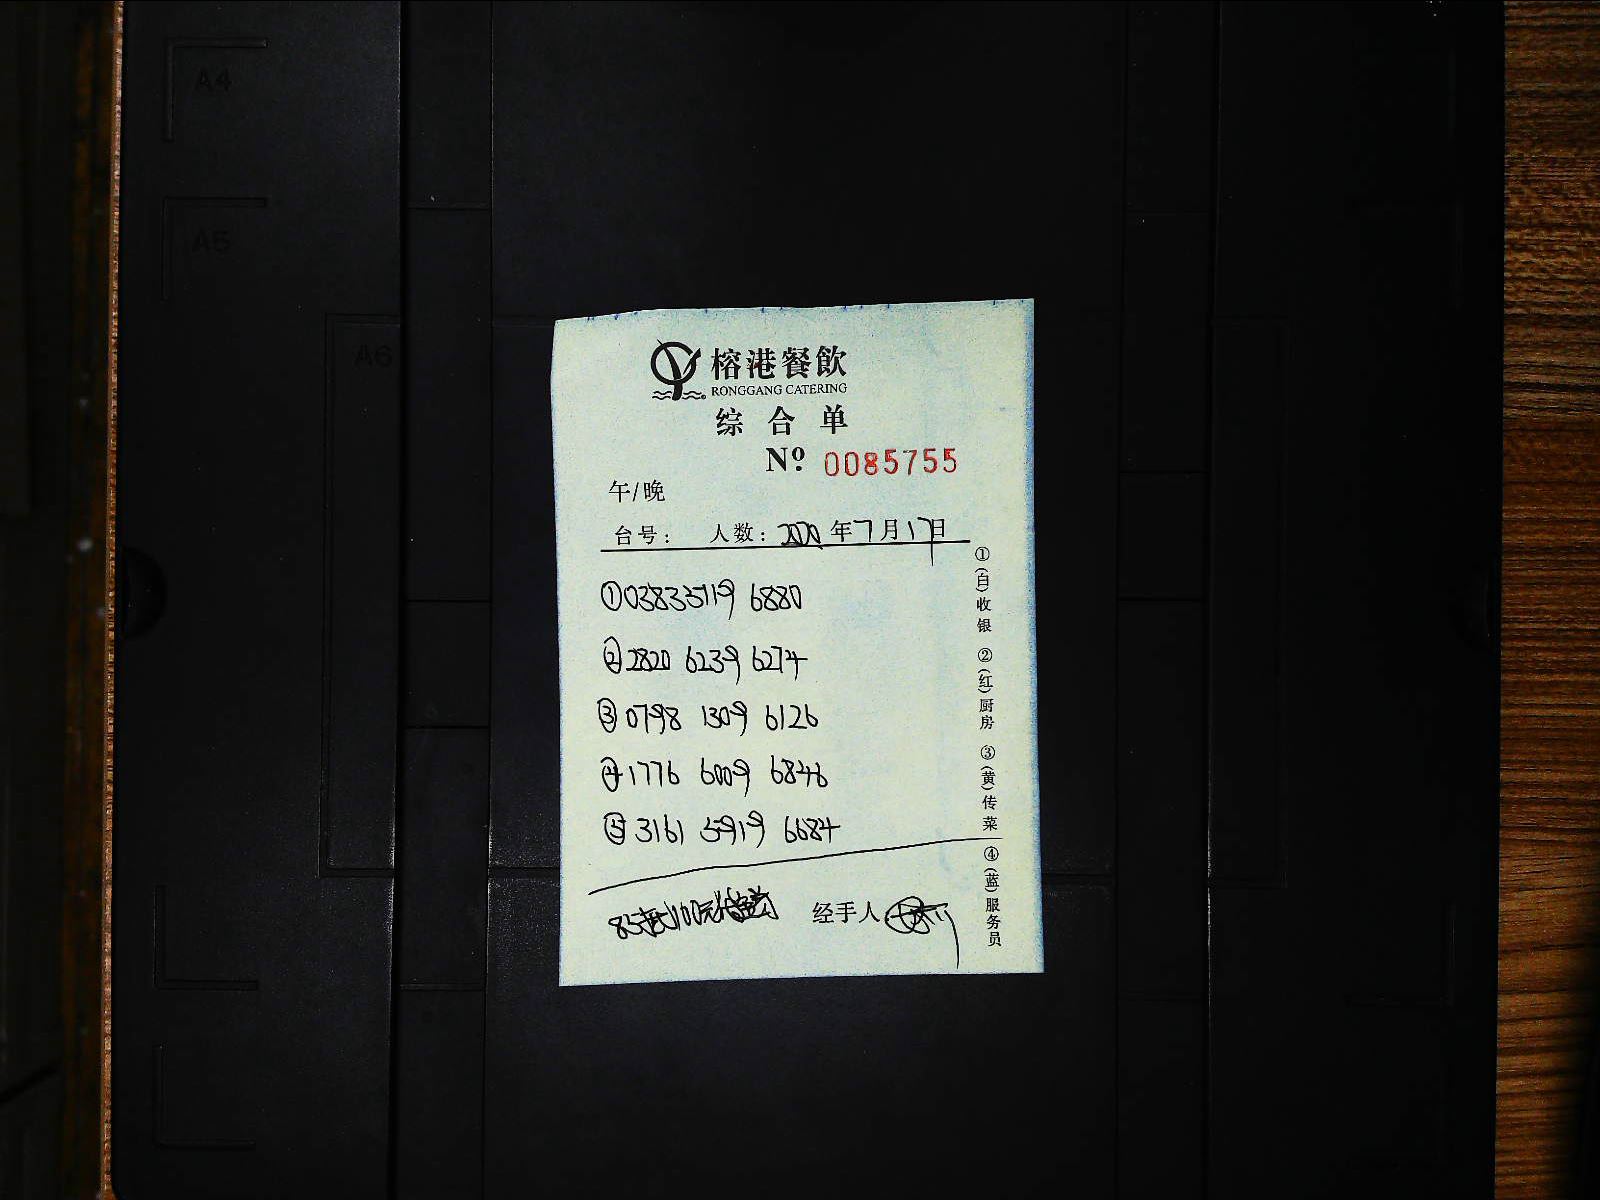 A4
A5
A6
榕港餐飲
RONGGANG CATERING
综合单
Nº 0085755
午/晚
台号： 人数：2020年7月17日
①03835119 6880
②2820 6239 6274
③0798 1309 6126
④1776 6009 6846
⑤3161 5919 6684
85抵100元
经手人
①(白)收银 ②(红)厨房 ③(黄)传菜 ④(蓝)服务员